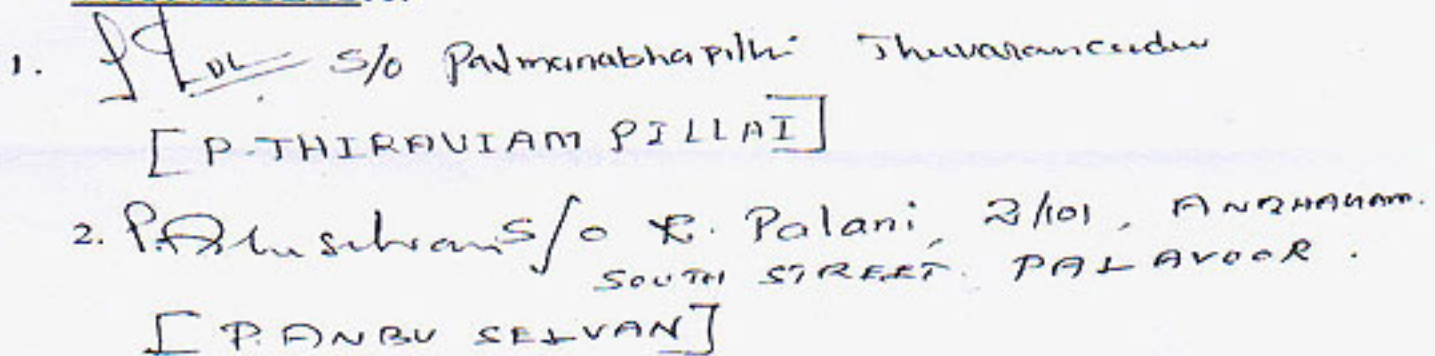 1. S/o Padmanabhapillai Thuvarancadu
[P. THIRAVIAM PILLAI]
2. P. Anbu selvan S/o R. Palani, 2/101, ANBHAHAM.
SOUTH STREET. PALAVOOR.
[P. ANBU SELVAN]